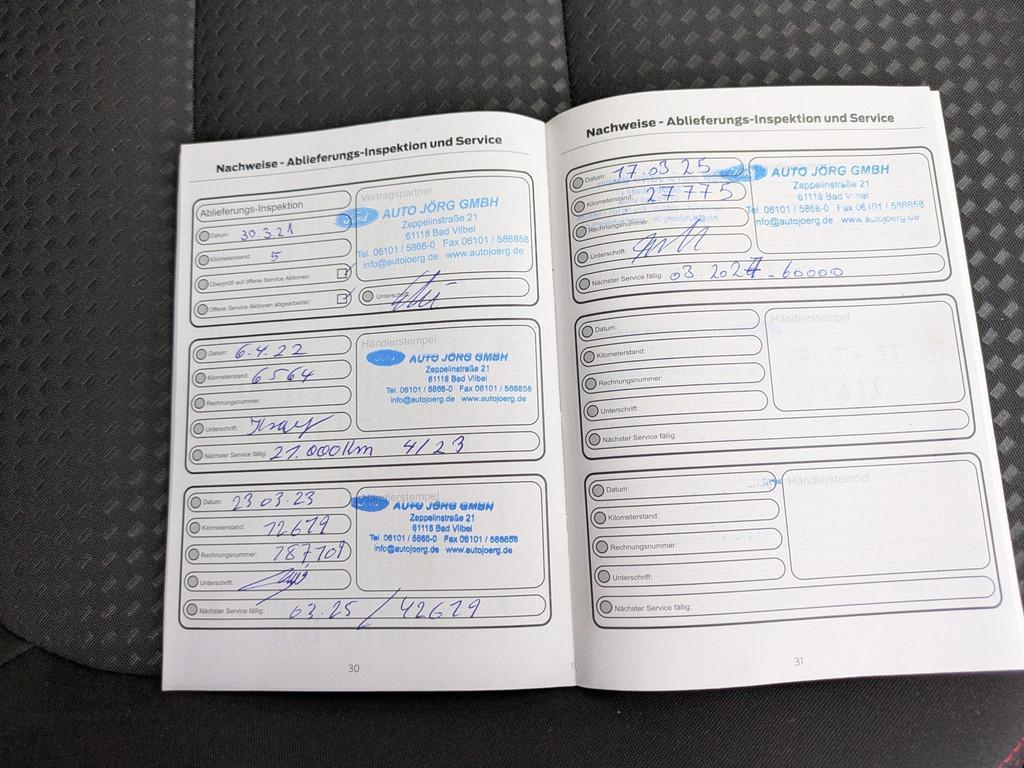 Nachweise - Ablieferungs-Inspektion und Service
Ablieferungs-Inspektion
Datum: 30.3.21
Kilometerstand: 5
Überprüft auf offene Service Aktionen:
Offene Service Aktionen abgearbeitet:
Vertragspartner
AUTO JÖRG GMBH
Zeppelinstraße 21
61118 Bad Vilbel
Tel. 06101 / 5868-0 Fax 06101 / 586858
info@autojoerg.de www.autojoerg.de
Unterschrift:
Datum: 6.4.22
Kilometerstand: 6564
Rechnungsnummer:
Unterschrift:
Nächster Service fällig: 21.000km 4/23
Händlerstempel
AUTO JÖRG GMBH
Zeppelinstraße 21
61118 Bad Vilbel
Tel. 06101 / 5868-0 Fax 06101 / 586858
info@autojoerg.de www.autojoerg.de
Datum: 23.03.23
Kilometerstand: 12619
Rechnungsnummer: 187109
Unterschrift:
Nächster Service fällig: 03.25 / 42619
Händlerstempel
AUTO JÖRG GMBH
Zeppelinstraße 21
61118 Bad Vilbel
Tel. 06101 / 5868-0 Fax 06101 / 586858
info@autojoerg.de www.autojoerg.de
30
Nachweise - Ablieferungs-Inspektion und Service
Datum: 17.03.25
Kilometerstand: 27775
Rechnungsnummer:
Unterschrift:
Nächster Service fällig: 03.2027 - 60000
AUTO JÖRG GMBH
Zeppelinstraße 21
61118 Bad Vilbel
Tel. 06101 / 5868-0 Fax 06101 / 586858
info@autojoerg.de www.autojoerg.de
Datum:
Kilometerstand:
Rechnungsnummer:
Unterschrift:
Nächster Service fällig:
Händlerstempel
Datum:
Kilometerstand:
Rechnungsnummer:
Unterschrift:
Nächster Service fällig:
Händlerstempel
31